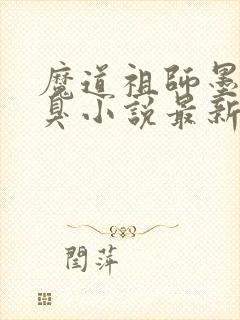 魔道祖師墨
臭小説最新
閆萍